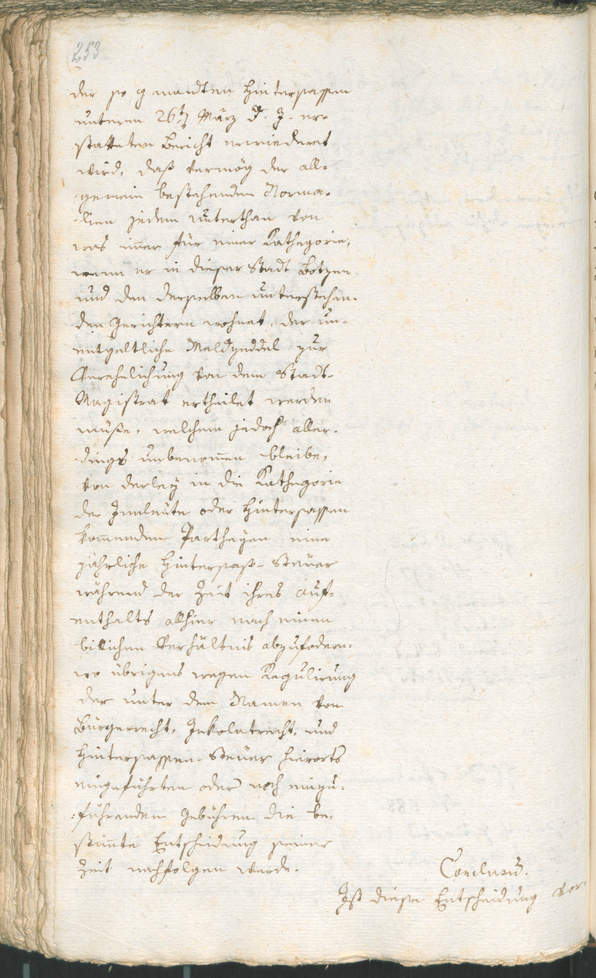 253.
der so genandten Hintersassen
unterm 26ten März d. J. er-
statteten Bericht erwiederet
wird, daß vermög der all-
gemein bestehenden Norma-
lien jedem Unterthan von
was immer für einer Kathegorie,
wenn er in dieser Stadt Botzen
und den derselben unterstehen-
den Gerichtern wohnet, der un-
entgeltliche Meldzeddel zur
Verehelichung von dem Stadt-
Magistrat ertheilet werden
müße, welchem jedoch aller-
dings unbenommen bleibe,
von derley in die Kathegorie
der Innleute oder Hintersassen
kommenden Partheyen eine
jährliche Hintersaß-Steuer
während der Zeit ihres Auf-
enthalts allhier nach einem
billichen Verhältnis abzufodern.
wo übrigens wegen Regulirung
der unter dem Namen von
Bürgerrecht, Inkolatrecht, und
Hintersassen-Steuer hierorts
eingeführten oder noch einzu-
führenden Gebühren die be-
stimte Entscheidung seiner
Zeit nachfolgen werde.
Conclusum.
Ist diese Entscheidung vor